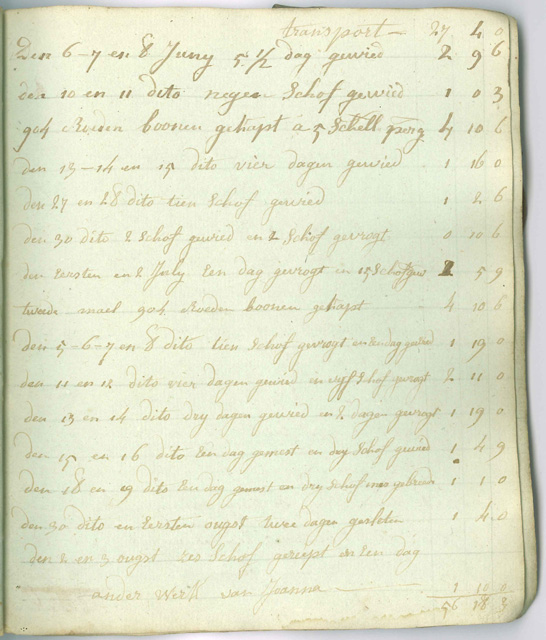 transport — 27 4 0
Den 6 - 7 en 8 Juny 5 1/2 dag gewied 2 9 6
den 10 en 11 dito negen Schof gewied 1 0 3
904 Roeden boonen gekapt a 5 Schell 4 10 6
den 13 - 14 en 15 dito vier dagen gewied 1 16 0
den 27 en 28 dito tien Schof gewied 1 2 6
den 30 dito 2 Schof gewied en 2 Schof gevrogt 0 10 6
den Eersten en 2 July Een dag gevrogt en 15 Schof gew 2 5 9
twede mael 904 Roeden boonen gekapt 4 10 6
den 5 - 6 - 7 en 8 dito tien Schof gevrogt en Een dag gewied 1 19 0
den 11 en 12 dito vier dagen gewied en vyf Schof gevrogt 2 11 0
den 13 en 14 dito dry dagen gewied en 2 dagen gevrogt 1 19 0
den 15 en 16 dito Een dag gemest en dry Schof gewied 1 4 9
den 18 en 19 dito Een dag gemest en dry Schof 1 1 0
den 30 dito en Eersten ougst twee dagen 1 4 0
den 2 en 3 ougst zes Schof gereept en Een dag
ander Werk van Joanna — 1 10 0
56 18 3